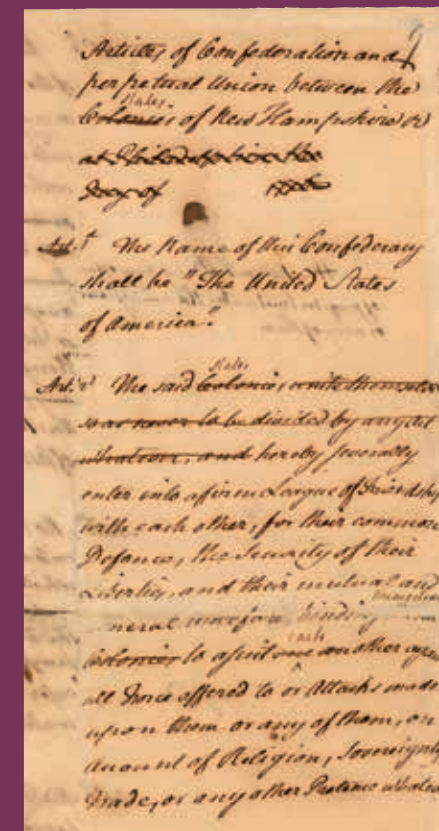 Articles of Confederation and
perpetual Union between the
States
Colonies of New Hampshire &c
at Philadelphia the
Day of
Art. 1st The Name of this Confederacy
shall be "The United States
of America."
States
Art. 2d The said Colonies unite themselves
so as never to be divided by any Act
whatever, and hereby severally
enter into a firm League of Friendship
with each other, for their common
Defence, the Security of their
Liberties, and their mutual and
neral welfare binding
each
Colonies to assist one another against
all Force offered to or Attacks made
upon them or any of them, on
Account of Religion, Sovereignty
Trade, or any other Pretence whatever